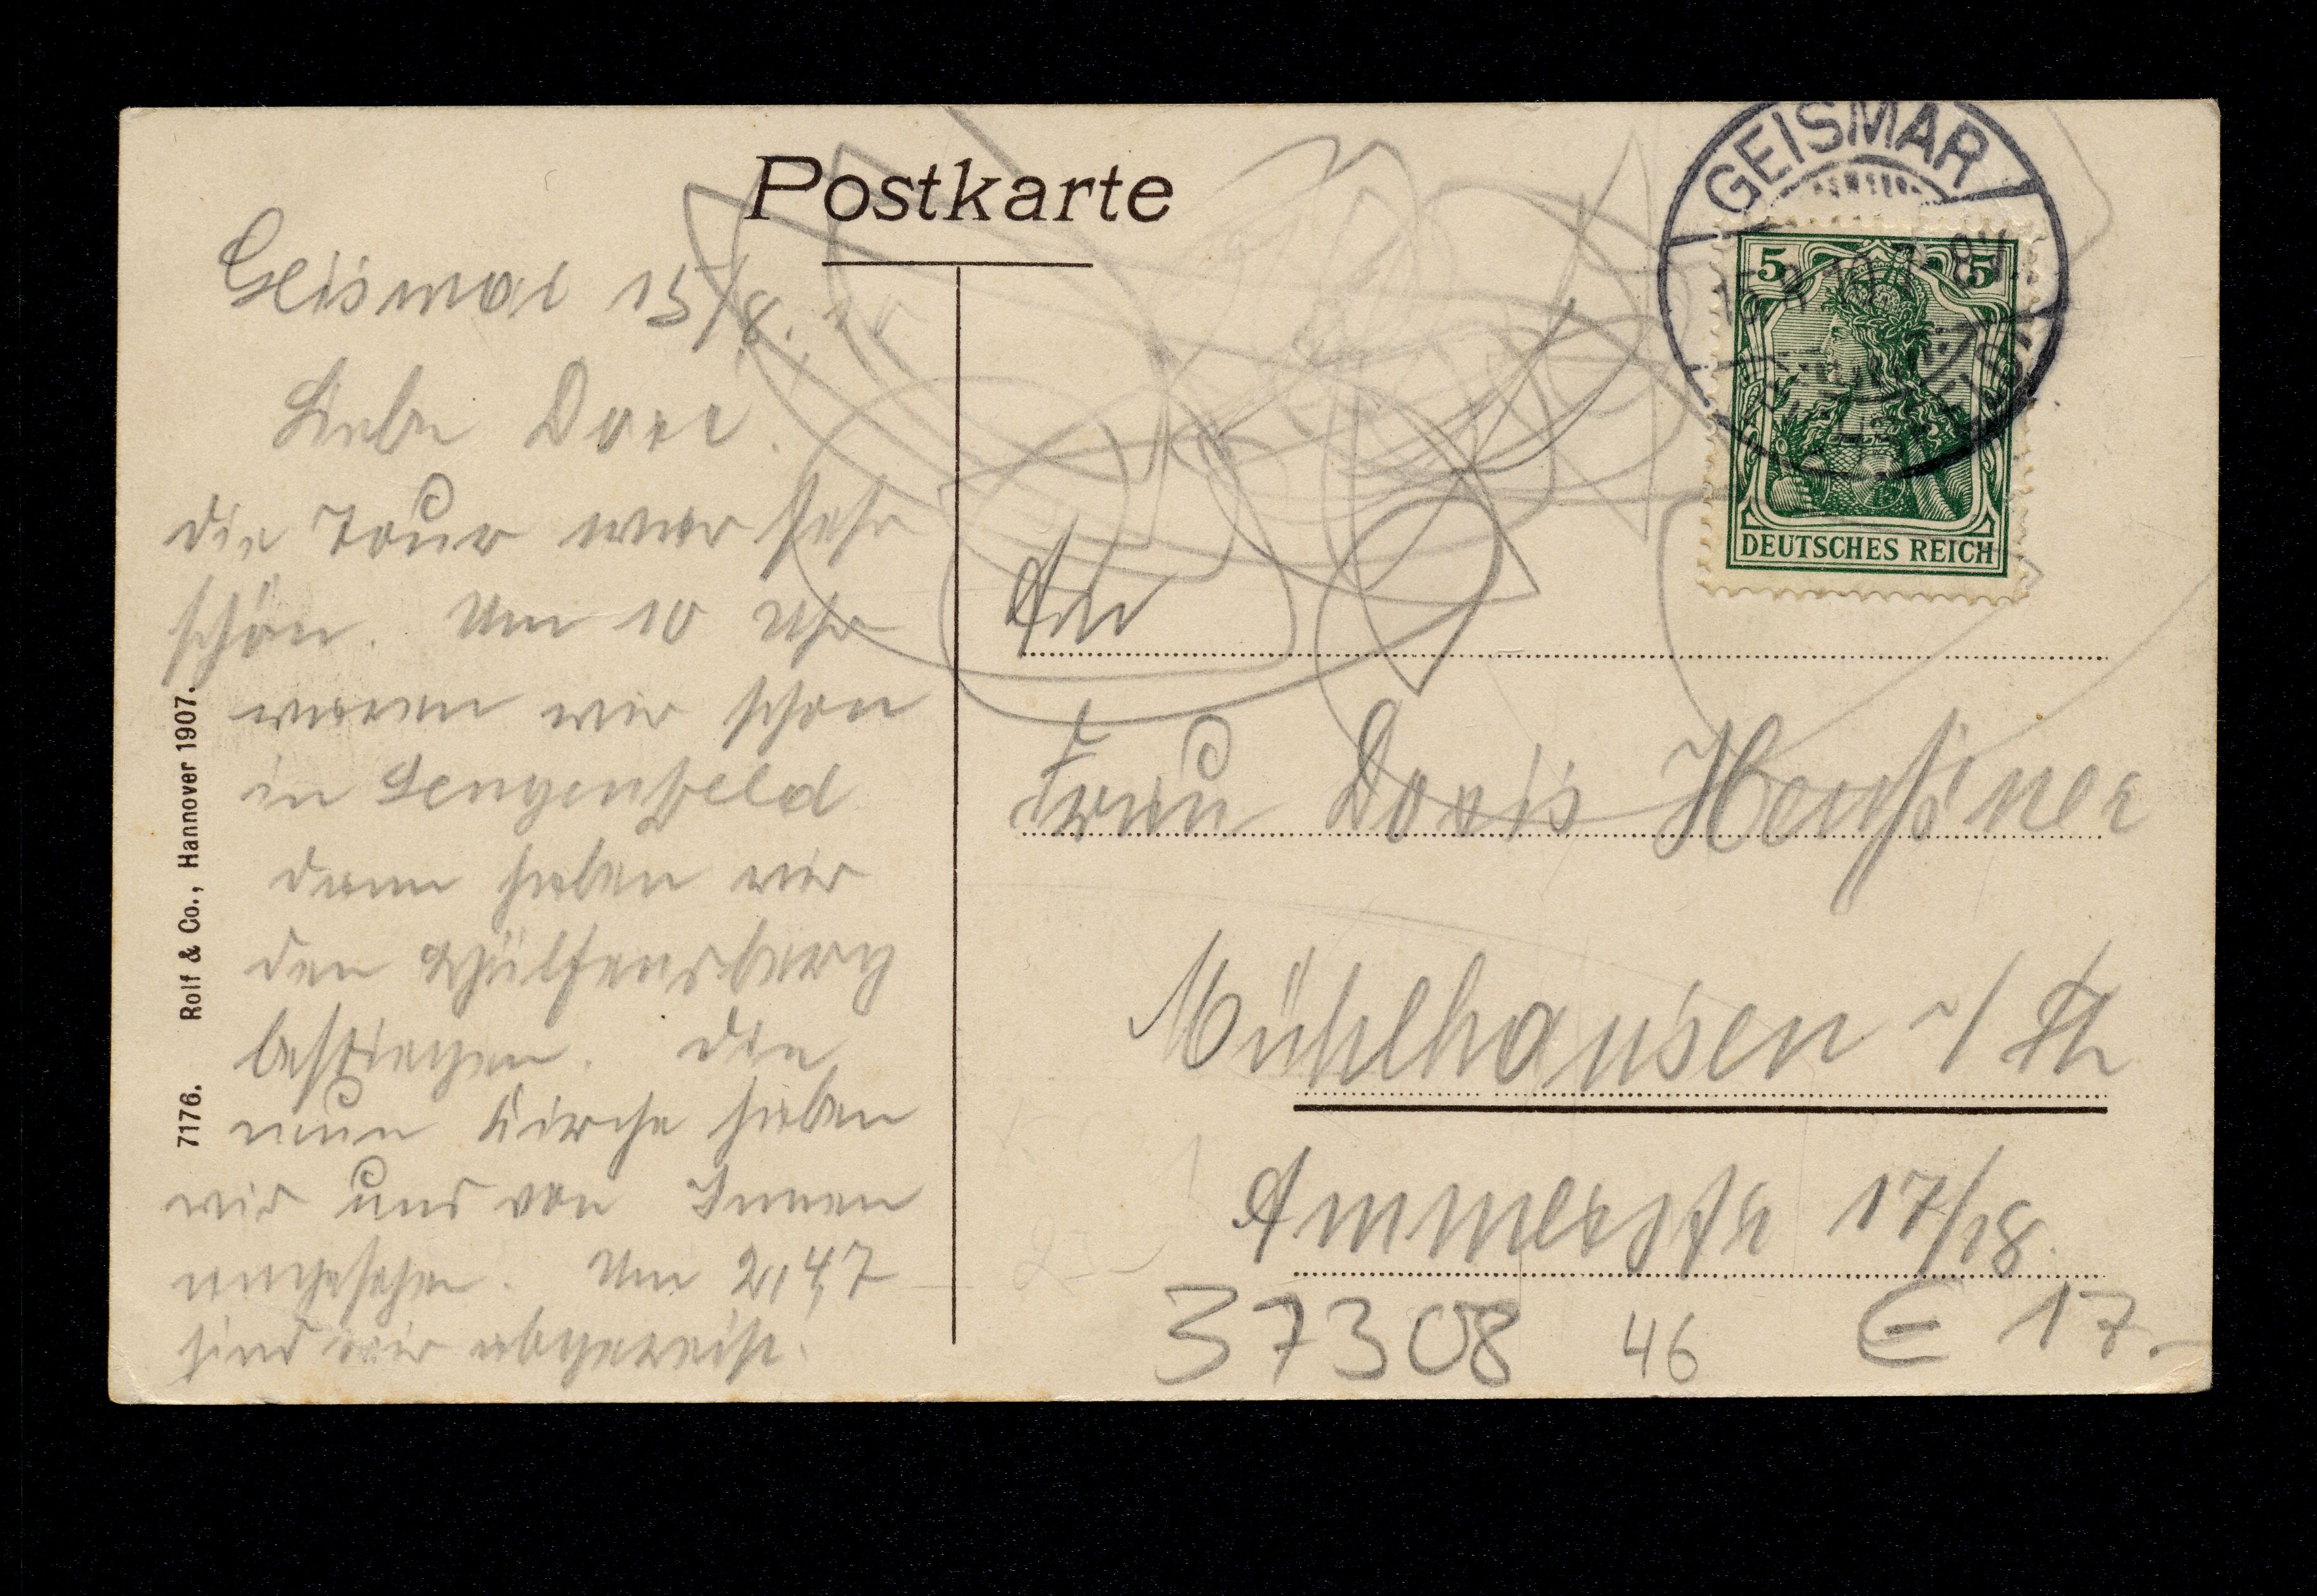 Postkarte
Geismar 15/8.
Liebe Dore.
die Tour war sehr
schön. Um 10 Uhr
waren wir schon
in Lengenfeld
dann haben wir
den Hülfensberg
bestiegen. die
neue Kirche haben
wir uns von Innen
angesehen. Um 2,47
sind wir abgereist.
7176. Rolf & Co., Hannover 1907.
GEISMAR
5 5
DEUTSCHES REICH
An
Frau Doris
Mühlhausen i/Th
Ammerstr 17/18.
37308 46 E 17.-